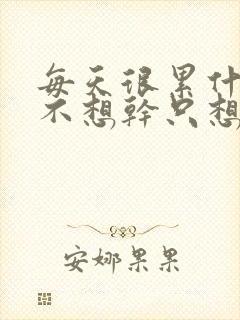 每天很累什
不想幹只想
安娜果果